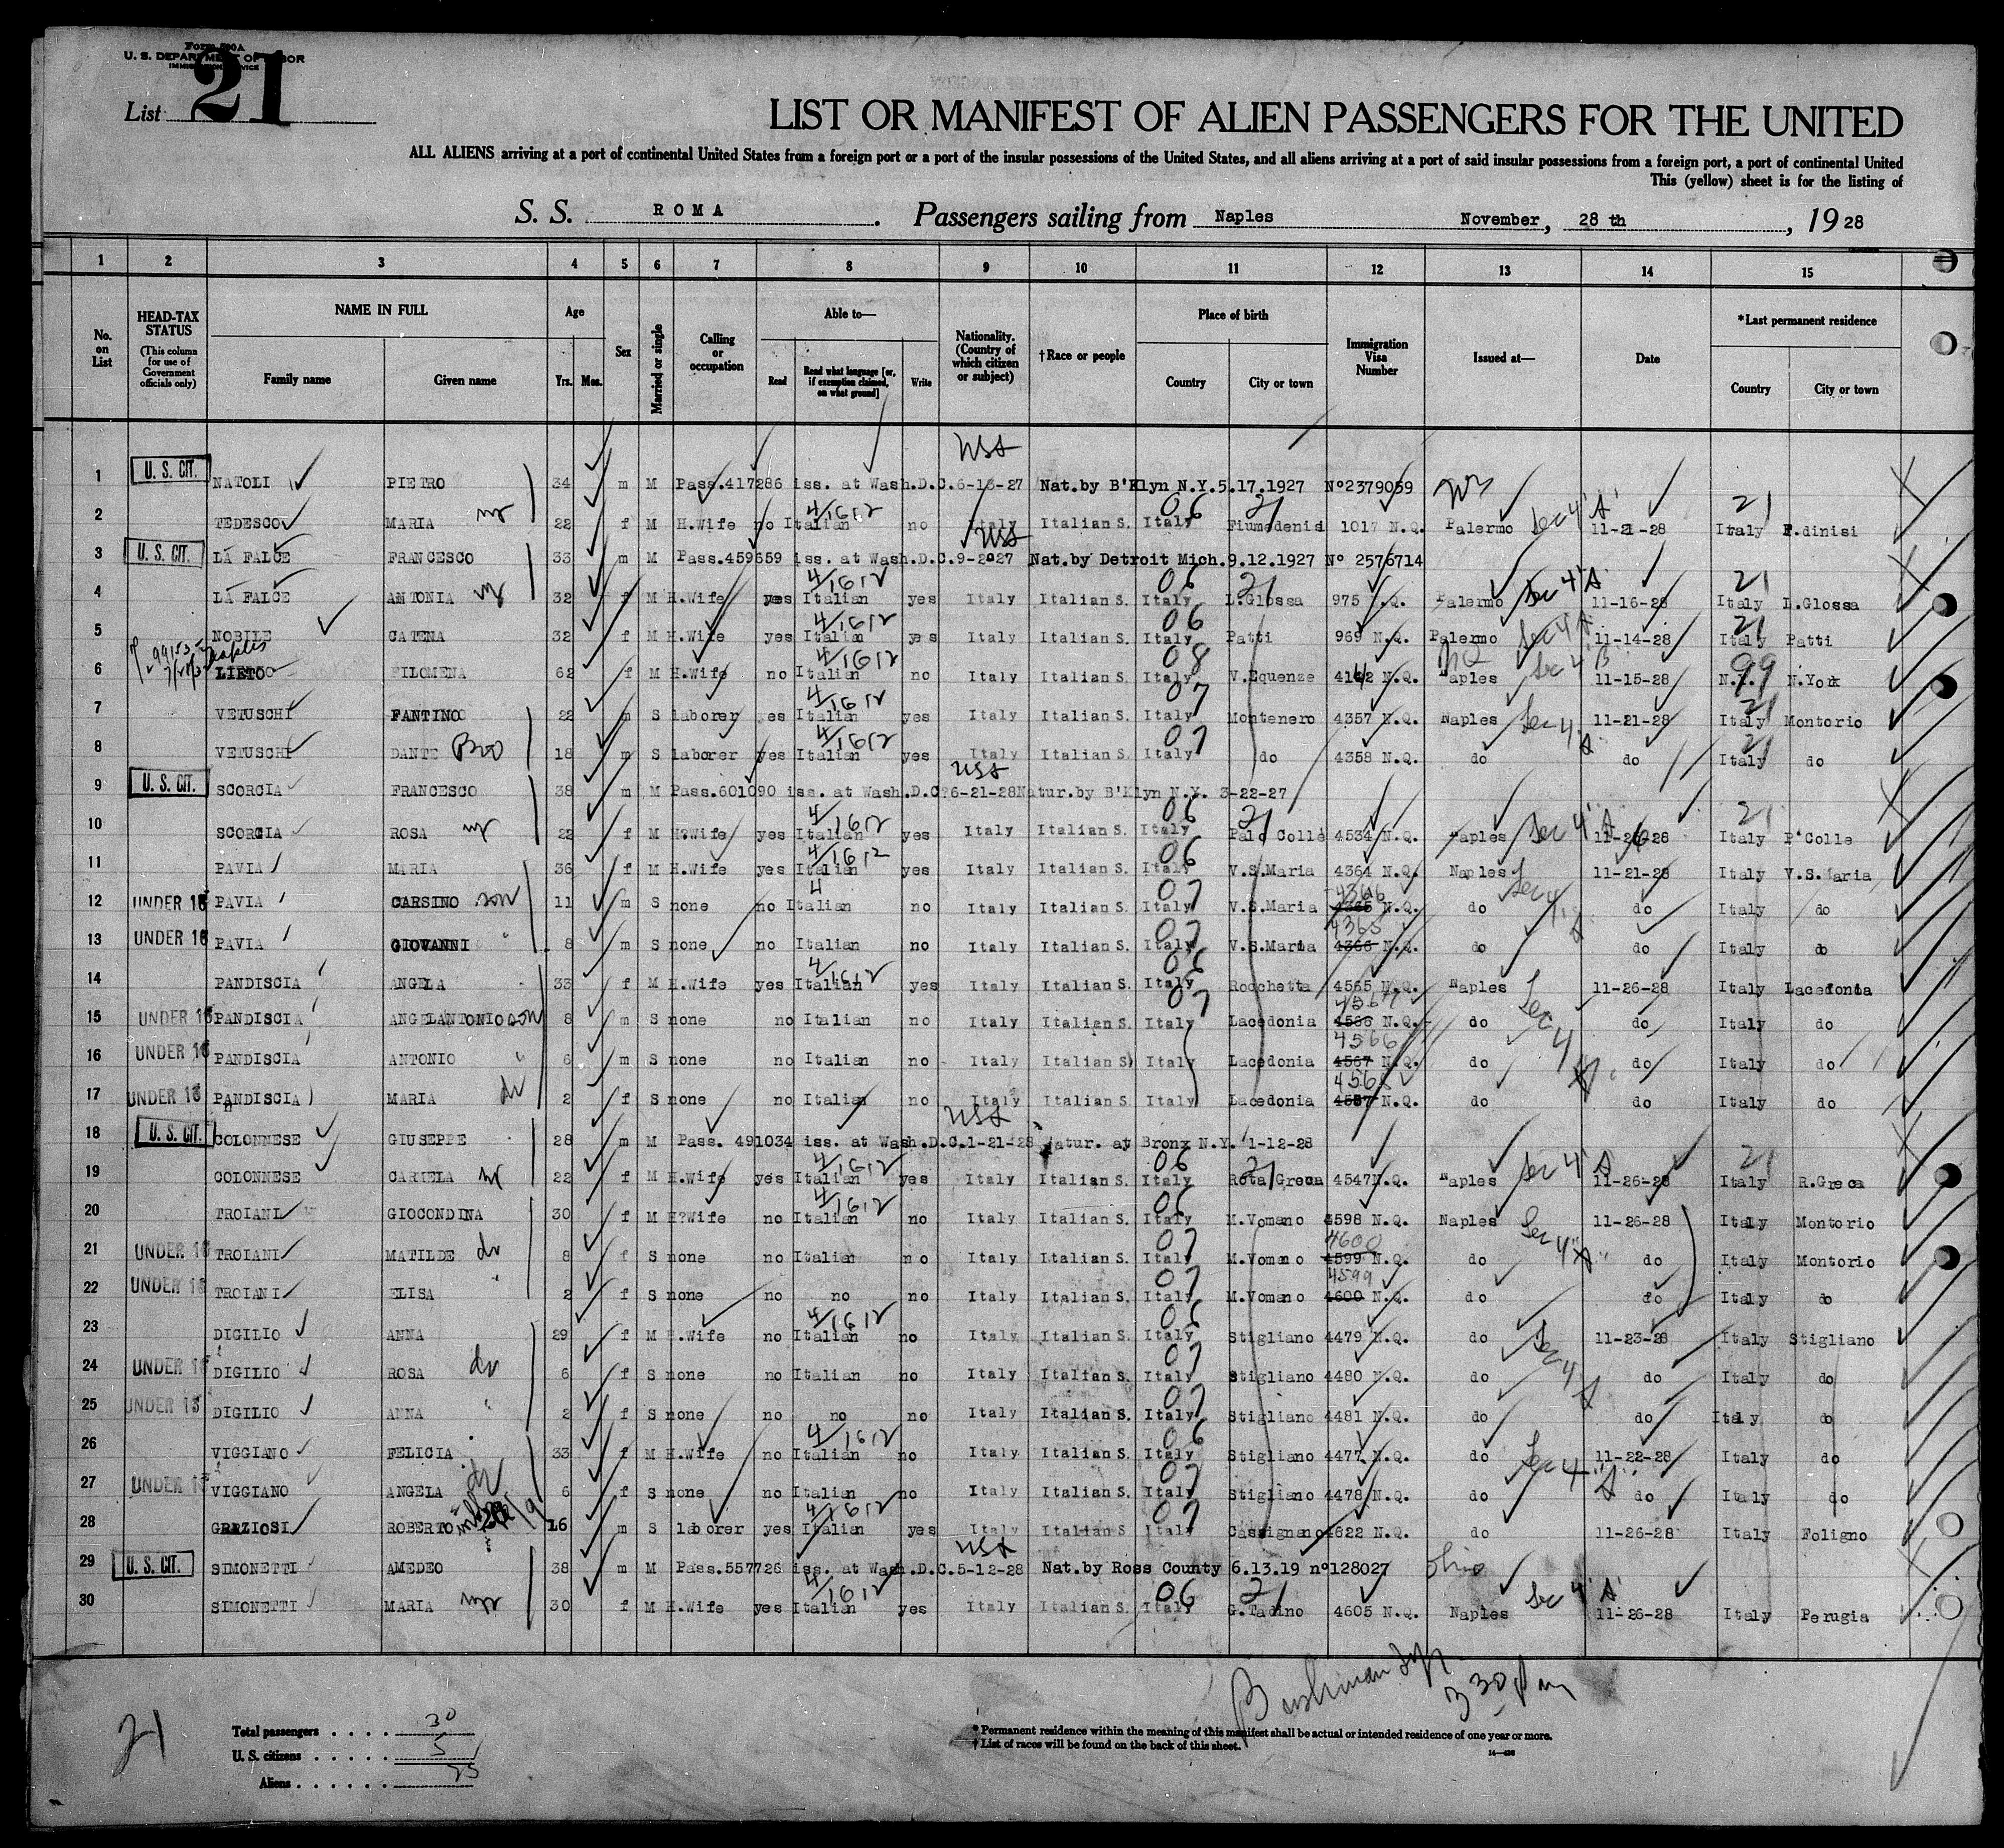 Form 500A
U. S. DEPARTMENT OF LABOR
IMMIGRATION SERVICE
List 21
LIST OR MANIFEST OF ALIEN PASSENGERS FOR THE UNITED
ALL ALIENS arriving at a port of continental United States from a foreign port or a port of the insular possessions of the United States, and all aliens arriving at a port of said insular possessions from a foreign port, a port of continental United
This (yellow) sheet is for the listing of
S. S. ROMA. Passengers sailing from Naples November, 28 th, 1928
1 2 3 4 5 6 7 8 9 10 11 12 13 14 15
No. on List
HEAD-TAX STATUS (This column for use of Government officials only)
NAME IN FULL Family name Given name
Age Yrs. Mos.
Sex
Married or single
Calling or occupation
Able to— Read Read what language [or, if exemption claimed, on what ground] Write
Nationality. (Country of which citizen or subject)
†Race or people
Place of birth Country City or town
Immigration Visa Number
Issued at—
Date
*Last permanent residence Country City or town
USA
1 U. S. CIT. NATOLI PIETRO 34 m M Pass.417286 iss. at Wash.D.C.6-13-27 Nat.by B'Klyn N.Y.5.17.1927 N°2379059
4/1612 06 21 Sec 4 "A" 21
2 TEDESCO MARIA 22 f M H.Wife no Italian no Italy Italian S. Italy Fiumedenisi 1017 N.Q. Palermo 11-21-28 Italy F.dinisi
USA
3 U. S. CIT. LA FALCE FRANCESCO 33 m M Pass.459659 iss. at Wash.D.C.9-2027 Nat.by Detroit Mich.9.12.1927 N° 2576714
4/1612 06 21 Sec 4 "A" 21
4 LA FALCE ANTONIA 32 f M H.Wife yes Italian yes Italy Italian S. Italy L.Glossa 975 N.Q. Palermo 11-16-28 Italy L.Glossa
4/1612 06 Sec 4 A 21
5 NOBILE CATENA 32 f M H.Wife yes Italian yes Italy Italian S. Italy Patti 969 N.Q. Palermo 11-14-28 Italy Patti
4/1612 08 NQ Sec 4 "B" 99
6 LIETO FILOMENA 62 f M H.Wife no Italian no Italy Italian S. Italy V.Equenze 4142 N.Q. Naples 11-15-28 N.Y. N.York
4/1612 07 21
7 VETUSCHI FANTINO 22 m S laborer yes Italian yes Italy Italian S. Italy Montenero 4357 N.Q. Naples Sec 4 A 11-21-28 Italy Montorio
4/1612 07 21
8 VETUSCHI DANTE Bro 18 m S laborer yes Italian yes Italy Italian S. Italy do 4358 N.Q. do do Italy do
USA
9 U. S. CIT. SCORCIA FRANCESCO 38 m M Pass.601090 iss. at Wash.D.C.6-21-28Natur.by B'Klyn N.Y. 3-22-27
4/1612 06 21 Sec 4 "A" 21
10 SCORCIA ROSA 22 f M H?Wife yes Italian yes Italy Italian S. Italy Palo Colle 4534 N.Q. Naples 11-26-28 Italy P'Colle
4/1612 06
11 PAVIA MARIA 36 f M H.Wife yes Italian yes Italy Italian S. Italy V.S.Maria 4364 N.Q. Naples Sec 4 A 11-21-28 Italy V.S.Maria
4 07 4366
12 UNDER 16 PAVIA CARSINO son 11 m S none no Italian no Italy Italian S. Italy V.S.Maria 4365 N.Q. do do Italy do
07 4365
13 UNDER 16 PAVIA GIOVANNI " 8 m S none no Italian no Italy Italian S. Italy V.S.Maria 4366 N.Q. do do Italy do
4/1612 06
14 PANDISCIA ANGELA 33 f M H.Wife yes Italian yes Italy Italian S. Italy Rocchetta 4565 N.Q. Naples Sec 4 A 11-26-28 Italy Lacedonia
07 4567
15 UNDER 16 PANDISCIA ANGELANTONIO son 8 m S none no Italian no Italy Italian S. Italy Lacedonia 4566 N.Q. do do Italy do
4566
16 UNDER 16 PANDISCIA ANTONIO " 6 m S none no Italian no Italy Italian S. Italy Lacedonia 4567 N.Q. do do Italy do
17 UNDER 16 PANDISCIA MARIA 2 f S none no Italian no Italy Italian S. Italy Lacedonia N.Q. do do Italy do
USA
18 U. S. CIT. COLONNESE GIUSEPPE 28 m M Pass. 491034 iss. at Wash.D.C.1-21-28 Natur. at Bronx N.Y. 1-12-28
4/1612 06 21 Sec 4 "A" 21
19 COLONNESE CARMELA 22 f M H.Wife yes Italian yes Italy Italian S. Italy Rota Greca 4547N.Q. Naples 11-26-28 Italy R.Greca
4/1612 06
20 TROIANI GIOCONDINA 30 f M H?Wife no Italian no Italy Italian S. Italy M.Vomano 4598 N.Q. Naples Sec 4 "A" 11-26-28 Italy Montorio
07 4600
21 UNDER 16 TROIANI MATILDE 8 f S none no Italian no Italy Italian S. Italy M.Vomano 4599 N.Q. do do Italy Montorio
07 4599
22 UNDER 16 TROIANI ELISA " 2 f S none no no no Italy Italian S. Italy M.Vomano 4600 N.Q. do do Italy do
4/1612 06
23 DIGILIO ANNA 29 f M H.Wife no Italian no Italy Italian S. Italy Stigliano 4479 N.Q. do Sec 4 A 11-23-28 Italy Stigliano
07
24 UNDER 16 DIGILIO ROSA 6 f S none no Italian no Italy Italian S. Italy Stigliano 4480 N.Q. do do Italy do
07
25 UNDER 16 DIGILIO ANNA " 2 f S none no no no Italy Italian S. Italy Stigliano 4481 N.Q. do do Italy do
4/1612 06
26 VIGGIANO FELICIA 33 f M H.Wife no Italian no Italy Italian S. Italy Stigliano 4477 N.Q. do Sec 4 "A" 11-22-28 Italy do
07
27 UNDER 16 VIGGIANO ANGELA 6 f S none no Italian no Italy Italian S. Italy Stigliano 4478 N.Q. do do Italy do
4/1612 07
28 GRAZIOSI ROBERTO 16 m S laborer yes Italian yes Italy Italian S Italy Cassignano 4622 N.Q. do 11-26-28 Italy Foligno
USA
29 U. S. CIT. SIMONETTI AMEDEO 38 m M Pass.557726 iss. at Wash.D.C.5-12-28 Nat.by Ross County 6.13.19 n°128027 Ohio
4/1612 06 21 Sec 4 "A"
30 SIMONETTI MARIA 30 f M H.Wife yes Italian yes Italy Italian S. Italy G.Tadino 4605 N.Q. Naples 11-26-28 Italy Perugia
Bushman
3 30 Pm
21
Total passengers . . . . 30
U. S. citizens . . . . . 5
Aliens . . . . . . 25
* Permanent residence within the meaning of this manifest shall be actual or intended residence of one year or more.
† List of races will be found on the back of this sheet.